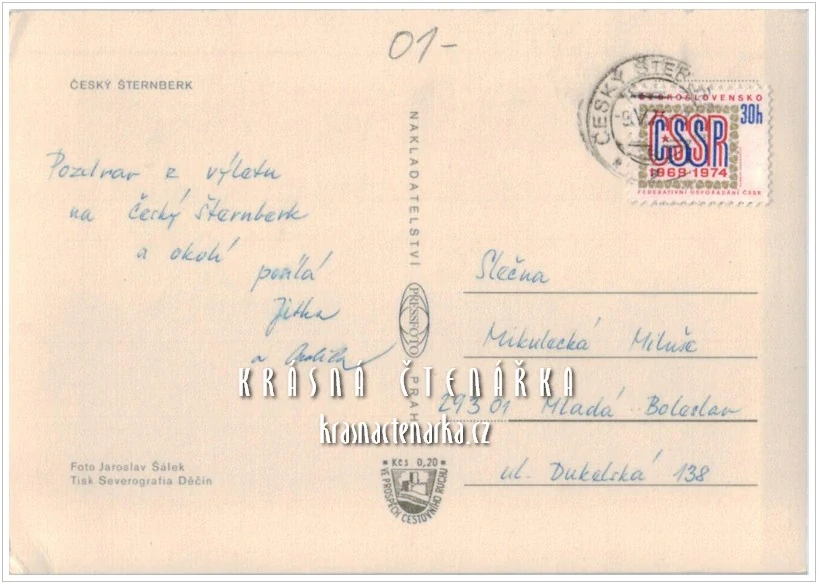 01-
ČESKÝ ŠTERNBERK
Pozdrav z výletu
na Český Šternberk
a okolí
posílá
Jitka
a
NAKLADATELSTVÍ
PRESSFOTO
PRAHA
ČESKÝ ŠTER
ČESKOSLOVENSKO
30h
ČSSR
1969-1974
FEDERATIVNÍ USPOŘÁDÁNÍ ČSSR
Slečna
Mikulecká Miluše
29301 Mladá Boleslav
ul. Dukelská 138
KRÁSNÁ ČTENÁŘKA
krasnactenarka.cz
Foto Jaroslav Šálek
Tisk Severografia Děčín
Kčs 0,20
VE PROSPĚCH CESTOVNÍHO RUCHU